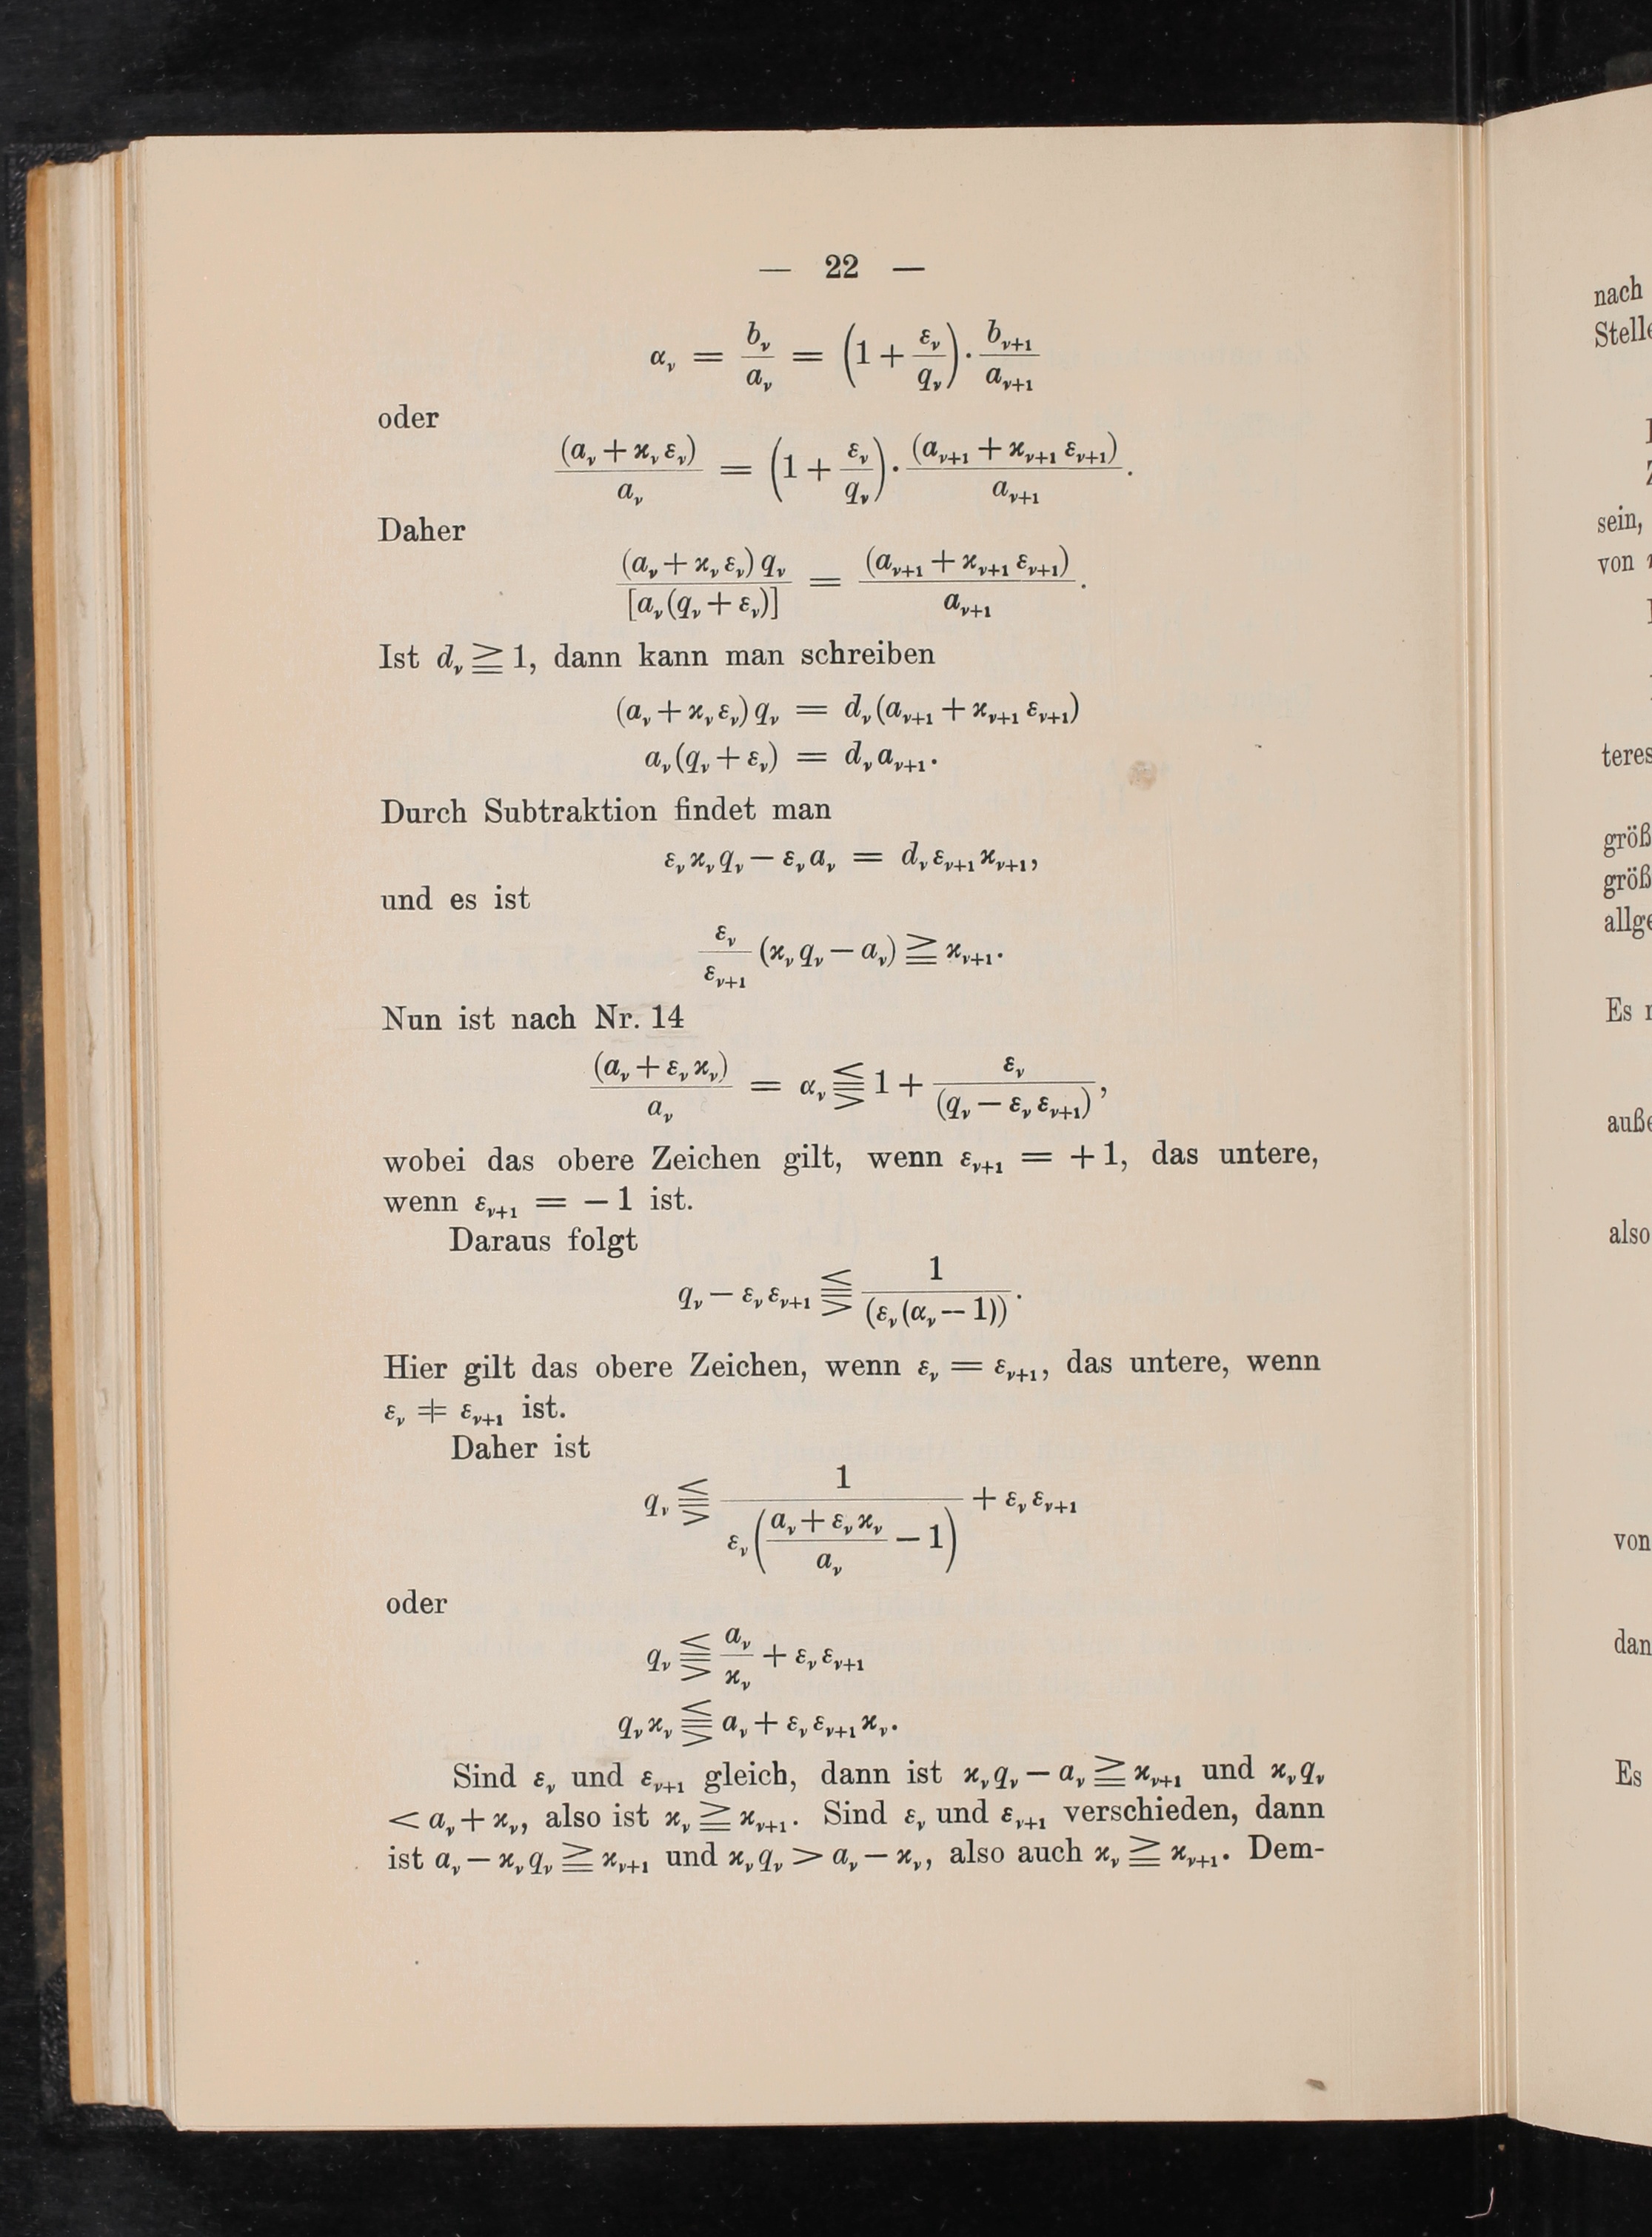 — 22 —
α_ν = b_ν/a_ν = (1 + ε_ν/q_ν) · b_{ν+1}/a_{ν+1}
oder
(a_ν + ϰ_ν ε_ν)/a_ν = (1 + ε_ν/q_ν) · (a_{ν+1} + ϰ_{ν+1} ε_{ν+1})/a_{ν+1}.
Daher
(a_ν + ϰ_ν ε_ν) q_ν/[a_ν (q_ν + ε_ν)] = (a_{ν+1} + ϰ_{ν+1} ε_{ν+1})/a_{ν+1}.
Ist d_ν ≧ 1, dann kann man schreiben
(a_ν + ϰ_ν ε_ν) q_ν = d_ν (a_{ν+1} + ϰ_{ν+1} ε_{ν+1})
a_ν (q_ν + ε_ν) = d_ν a_{ν+1}.
Durch Subtraktion findet man
ε_ν ϰ_ν q_ν — ε_ν a_ν = d_ν ε_{ν+1} ϰ_{ν+1},
und es ist
ε_ν/ε_{ν+1} (ϰ_ν q_ν — a_ν) ≧ ϰ_{ν+1}.
Nun ist nach Nr. 14
(a_ν + ε_ν ϰ_ν)/a_ν = α_ν ⪋ 1 + ε_ν/(q_ν — ε_ν ε_{ν+1}),
wobei das obere Zeichen gilt, wenn ε_{ν+1} = + 1, das untere,
wenn ε_{ν+1} = — 1 ist.
Daraus folgt
q_ν — ε_ν ε_{ν+1} ⪋ 1/(ε_ν (α_ν — 1)).
Hier gilt das obere Zeichen, wenn ε_ν = ε_{ν+1}, das untere, wenn
ε_ν ≠ ε_{ν+1} ist.
Daher ist
q_ν ⪋ 1/(ε_ν ((a_ν + ε_ν ϰ_ν)/a_ν — 1)) + ε_ν ε_{ν+1}
oder
q_ν ⪋ a_ν/ϰ_ν + ε_ν ε_{ν+1}
q_ν ϰ_ν ⪋ a_ν + ε_ν ε_{ν+1} ϰ_ν.
Sind ε_ν und ε_{ν+1} gleich, dann ist ϰ_ν q_ν — a_ν ≧ ϰ_{ν+1} und ϰ_ν q_ν
< a_ν + ϰ_ν, also ist ϰ_ν ≧ ϰ_{ν+1}. Sind ε_ν und ε_{ν+1} verschieden, dann
ist a_ν — ϰ_ν q_ν ≧ ϰ_{ν+1} und ϰ_ν q_ν > a_ν — ϰ_ν, also auch ϰ_ν ≧ ϰ_{ν+1}. Dem-
nach
sein,
von
Es
also
von
Es